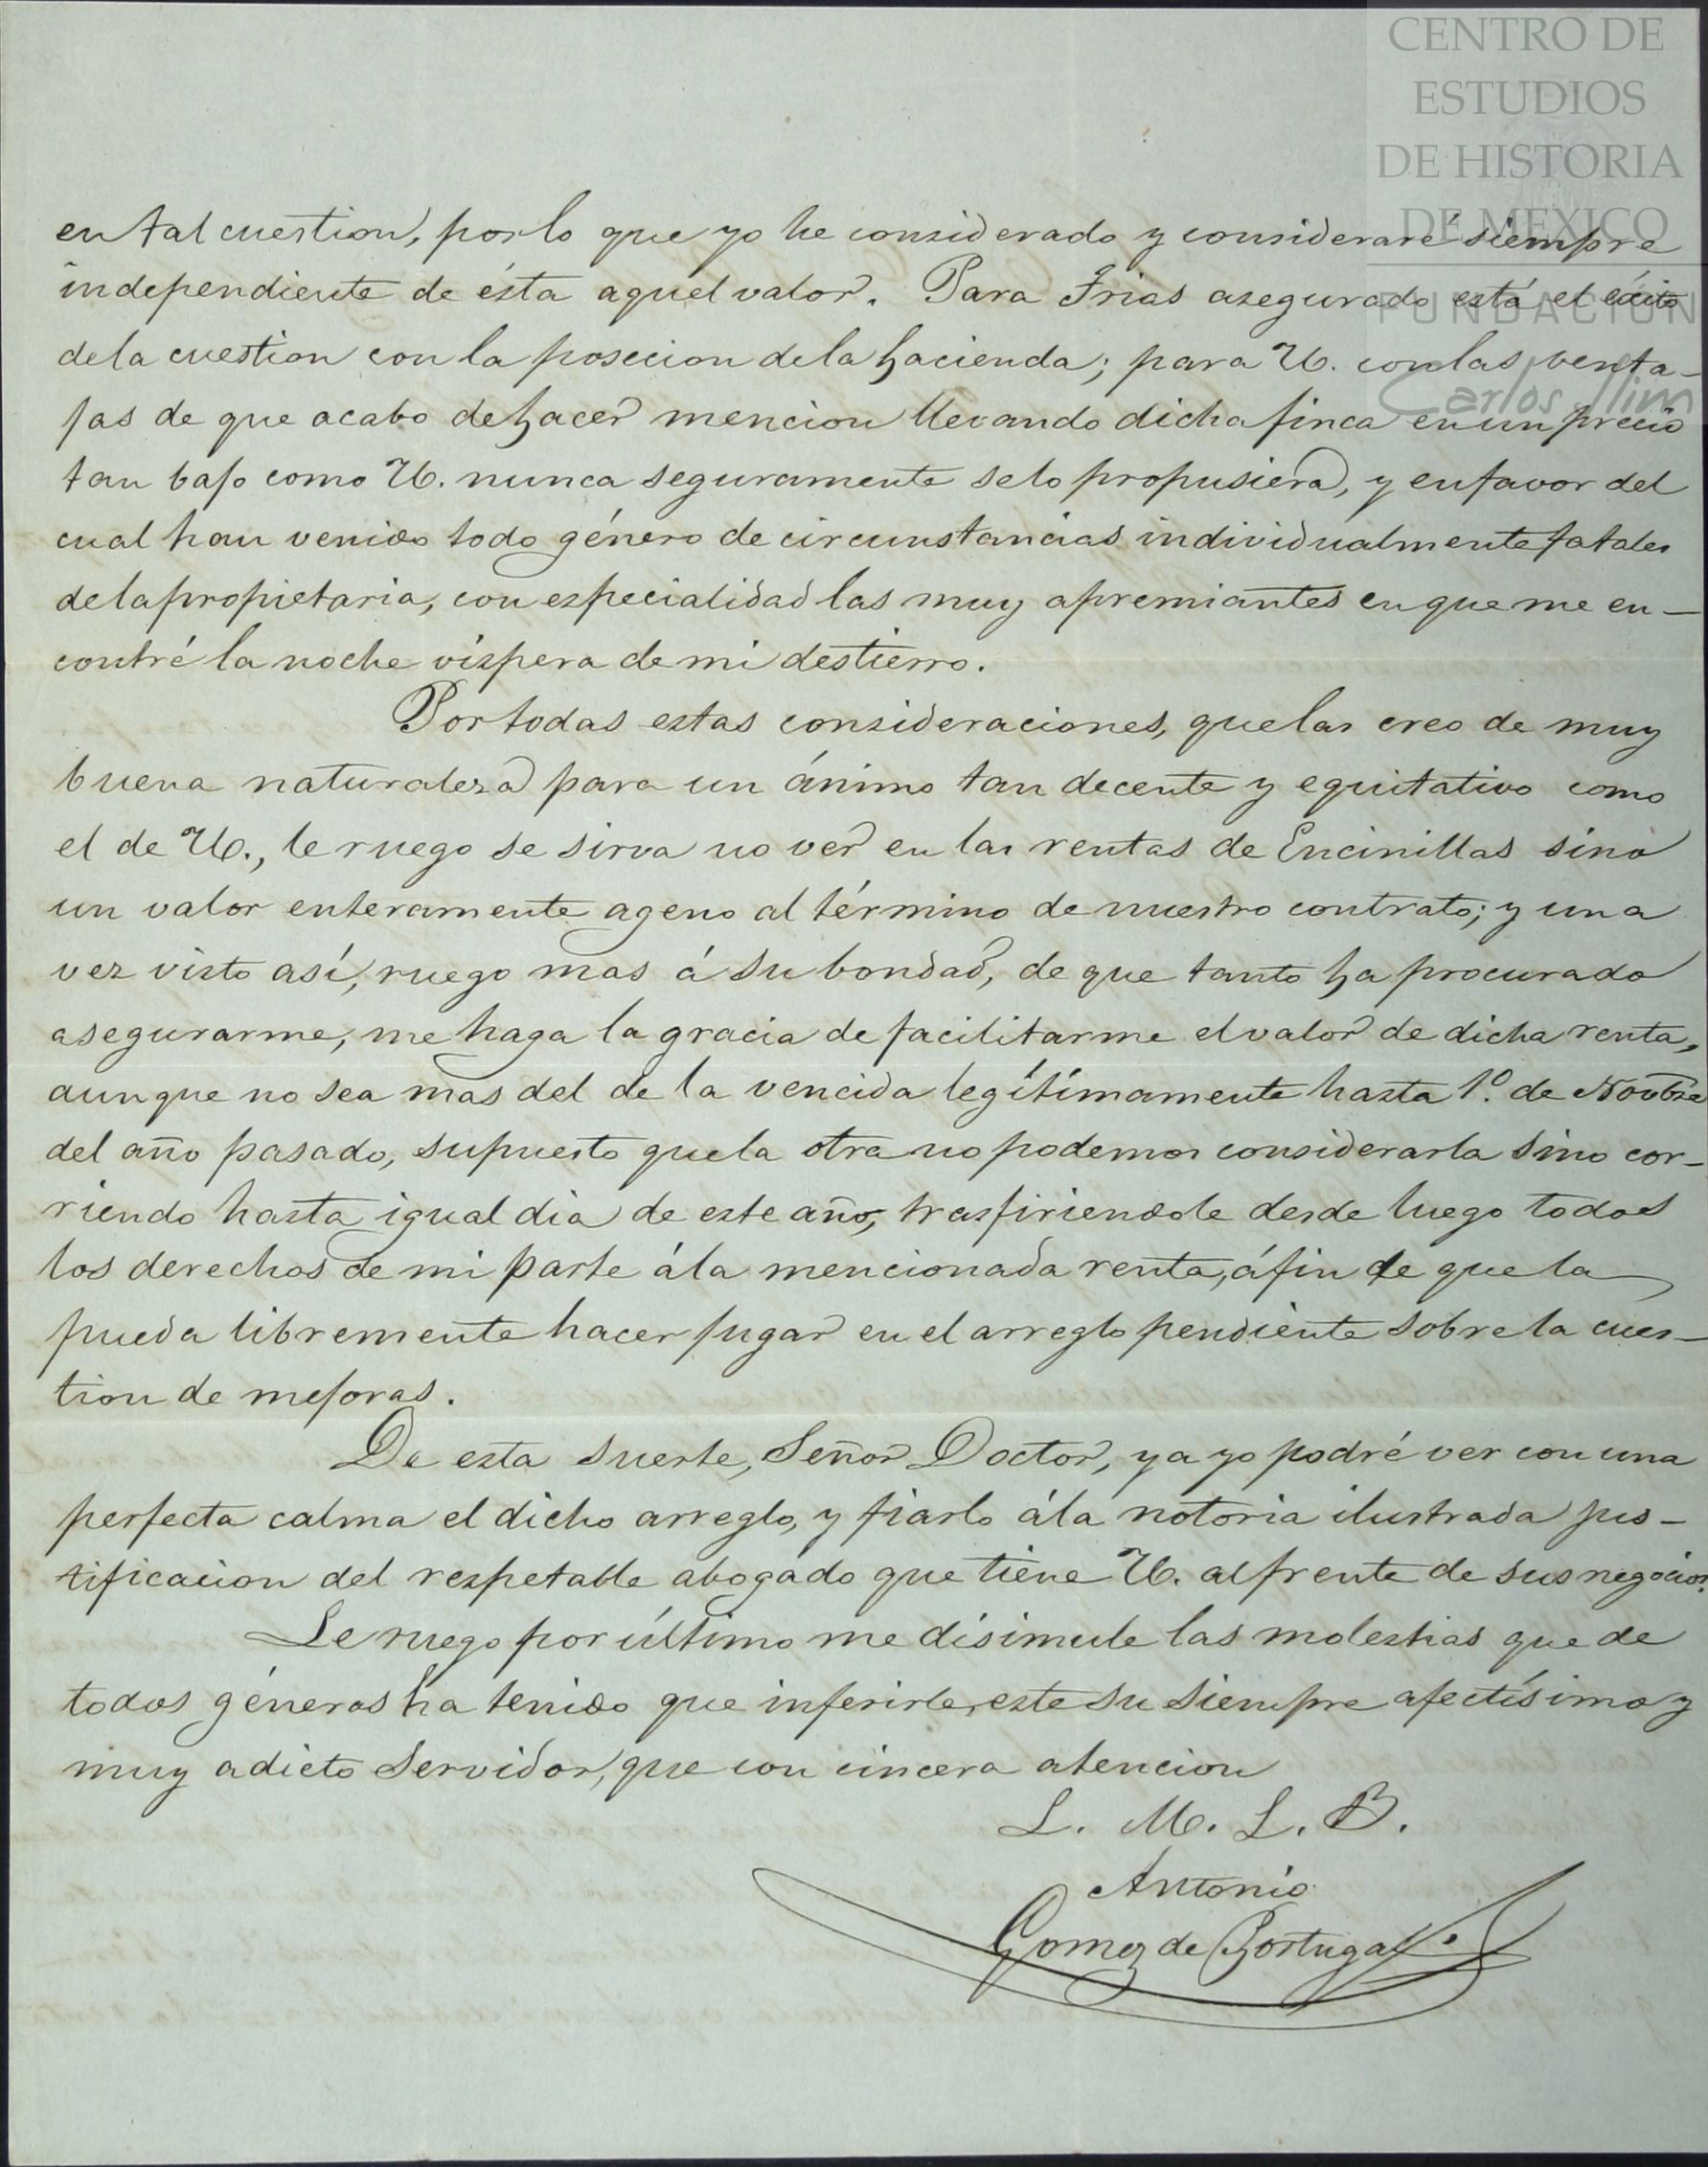 CENTRO DE
ESTUDIOS
DE HISTORIA
DE MEXICO
FUNDACIÓN
Carlos Slim
en tal cuestion, por lo que yo he considerado y consideraré siempre
independiente de ésta aquel valor. Para Frias asegurado está el éxito
de la cuestion con la posecion de la hacienda; para U. con las venta-
jas de que acabo de hacer mencion llevando dicha finca en un precio
tan bajo como U. nunca seguramente se lo propusiera, y en favor del
cual han venido todo género de circunstancias individualmente fatales
de la propietaria, con especialidad las muy apremiantes en que me en-
contré la noche víspera de mi destierro.
Por todas estas consideraciones, que las creo de muy
buena naturaleza para un ánimo tan decente y equitativo como
el de U., le ruego se sirva no ver en las rentas de Encinillas sino
un valor enteramente ageno al término de nuestro contrato; y una
vez visto así, ruego mas á su bondad, de que tanto ha procurado
asegurarme, me haga la gracia de facilitarme el valor de dicha renta,
aunque no sea mas del de la vencida legítimamente hasta 1º. de Novbre
del año pasado, supuesto que la otra no podemos considerarla sino cor-
riendo hasta igual dia de este año, trasfiriendole desde luego todos
los derechos de mi parte á la mencionada renta, á fin de que la
pueda libremente hacer jugar en el arreglo pendiente sobre la cues-
tion de mejoras.
De esta suerte, Señor Doctor, ya yo podré ver con una
perfecta calma el dicho arreglo, y fiarlo á la notoria ilustrada jus-
tificacion del respetable abogado que tiene U. al frente de sus negocios.
Le ruego por último me disimule las molestias que de
todos géneros ha tenido que inferirle, este su siempre afectísimo y
muy adicto Servidor, que con cincera atencion
L. M. L. B.
Antonio
Gomez de Portugal.